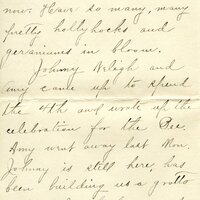 now. Have so many, many
pretty hollyhocks and
geraniums in bloom.
Johnny and
Amy came up to spend
the 4th and wrote up the
celebration for the Bee.
Amy went away last Mon.
Johnny is still here, has
been building us a grotto